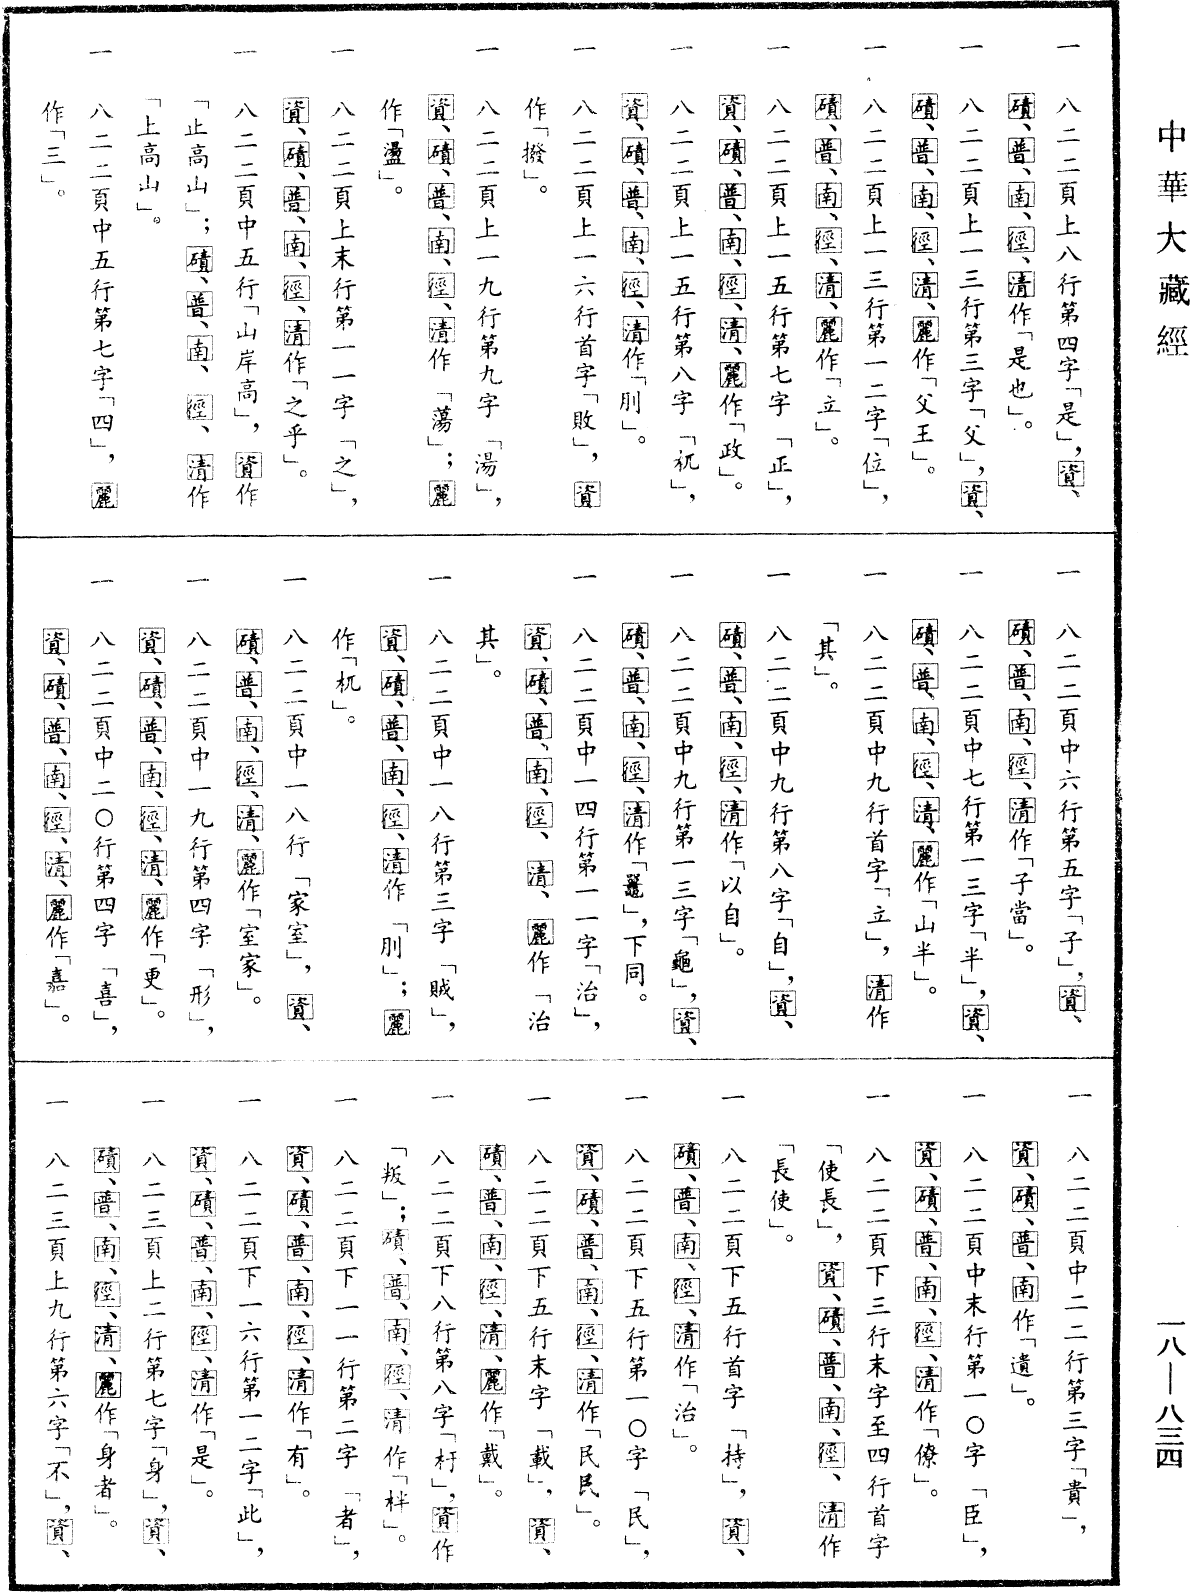 中華大藏經
一八—八三四
一 八二二頁上八行第四字「是」，資、
磧、普、南、徑、清作「是也」。
一 八二二頁上一三行第三字「父」，資、
磧、普、南、徑、清、麗作「父王」。
一 八二二頁上一三行第一二字「位」，
磧、普、南、徑、清、麗作「立」。
一 八二二頁上一五行第七字「正」，
資、磧、普、南、徑、清、麗作「政」。
一 八二二頁上一五行第八字「杌」，
資、磧、普、南、徑、清作「刖」。
一 八二二頁上一六行首字「敗」，資
作「撥」。
一 八二二頁上一九行第九字「湯」，
資、磧、普、南、徑、清作「蕩」；麗
作「盪」。
一 八二二頁上末行第一一字「之」，
資、磧、普、南、徑、清作「之乎」。
一 八二二頁中五行「山岸高」，資作
「止高山」；磧、普、南、徑、清作
「上高山」。
一 八二二頁中五行第七字「四」，麗
作「三」。
一 八二二頁中六行第五字「子」，資、
磧、普、南、徑、清作「子當」。
一 八二二頁中七行第一三字「半」，資、
磧、普、南、徑、清、麗作「山半」。
一 八二二頁中九行首字「立」，清作
「其」。
一 八二二頁中九行第八字「自」，資、
磧、普、南、徑、清作「以自」。
一 八二二頁中九行第一三字「龜」，資、
磧、普、南、徑、清作「鼉」，下同。
一 八二二頁中一四行第一一字「治」，
資、磧、普、南、徑、清、麗作「治
其」。
一 八二二頁中一八行第三字「賊」，
資、磧、普、南、徑、清作「刖」；麗
作「杌」。
一 八二二頁中一八行「家室」，資、
磧、普、南、徑、清、麗作「室家」。
一 八二二頁中一九行第四字「形」，
資、磧、普、南、徑、清、麗作「更」。
一 八二二頁中二〇行第四字「喜」，
資、磧、普、南、徑、清、麗作「嘉」。
一 八二二頁中二二行第三字「貴」，
資、磧、普、南作「遺」。
一 八二二頁中末行第一〇字「臣」，
資、磧、普、南、徑、清作「僚」。
一 八二二頁下三行末字至四行首字
「使長」，資、磧、普、南、徑、清作
「長使」。
一 八二二頁下五行首字「持」，資、
磧、普、南、徑、清作「治」。
一 八二二頁下五行第一〇字「民」，
資、磧、普、南、徑、清作「民民」。
一 八二二頁下五行末字「載」，資、
磧、普、南、徑、清、麗作「戴」。
一 八二二頁下八行第八字「杅」，資作
「叛」；磧、普、南、徑、清作「柈」。
一 八二二頁下一一行第二字「者」，
資、磧、普、南、徑、清作「有」。
一 八二二頁下一六行第一二字「此」，
資、磧、普、南、徑、清作「是」。
一 八二三頁上二行第七字「身」，資、
磧、普、南、徑、清、麗作「身者」。
一 八二三頁上九行第六字「不」，資、